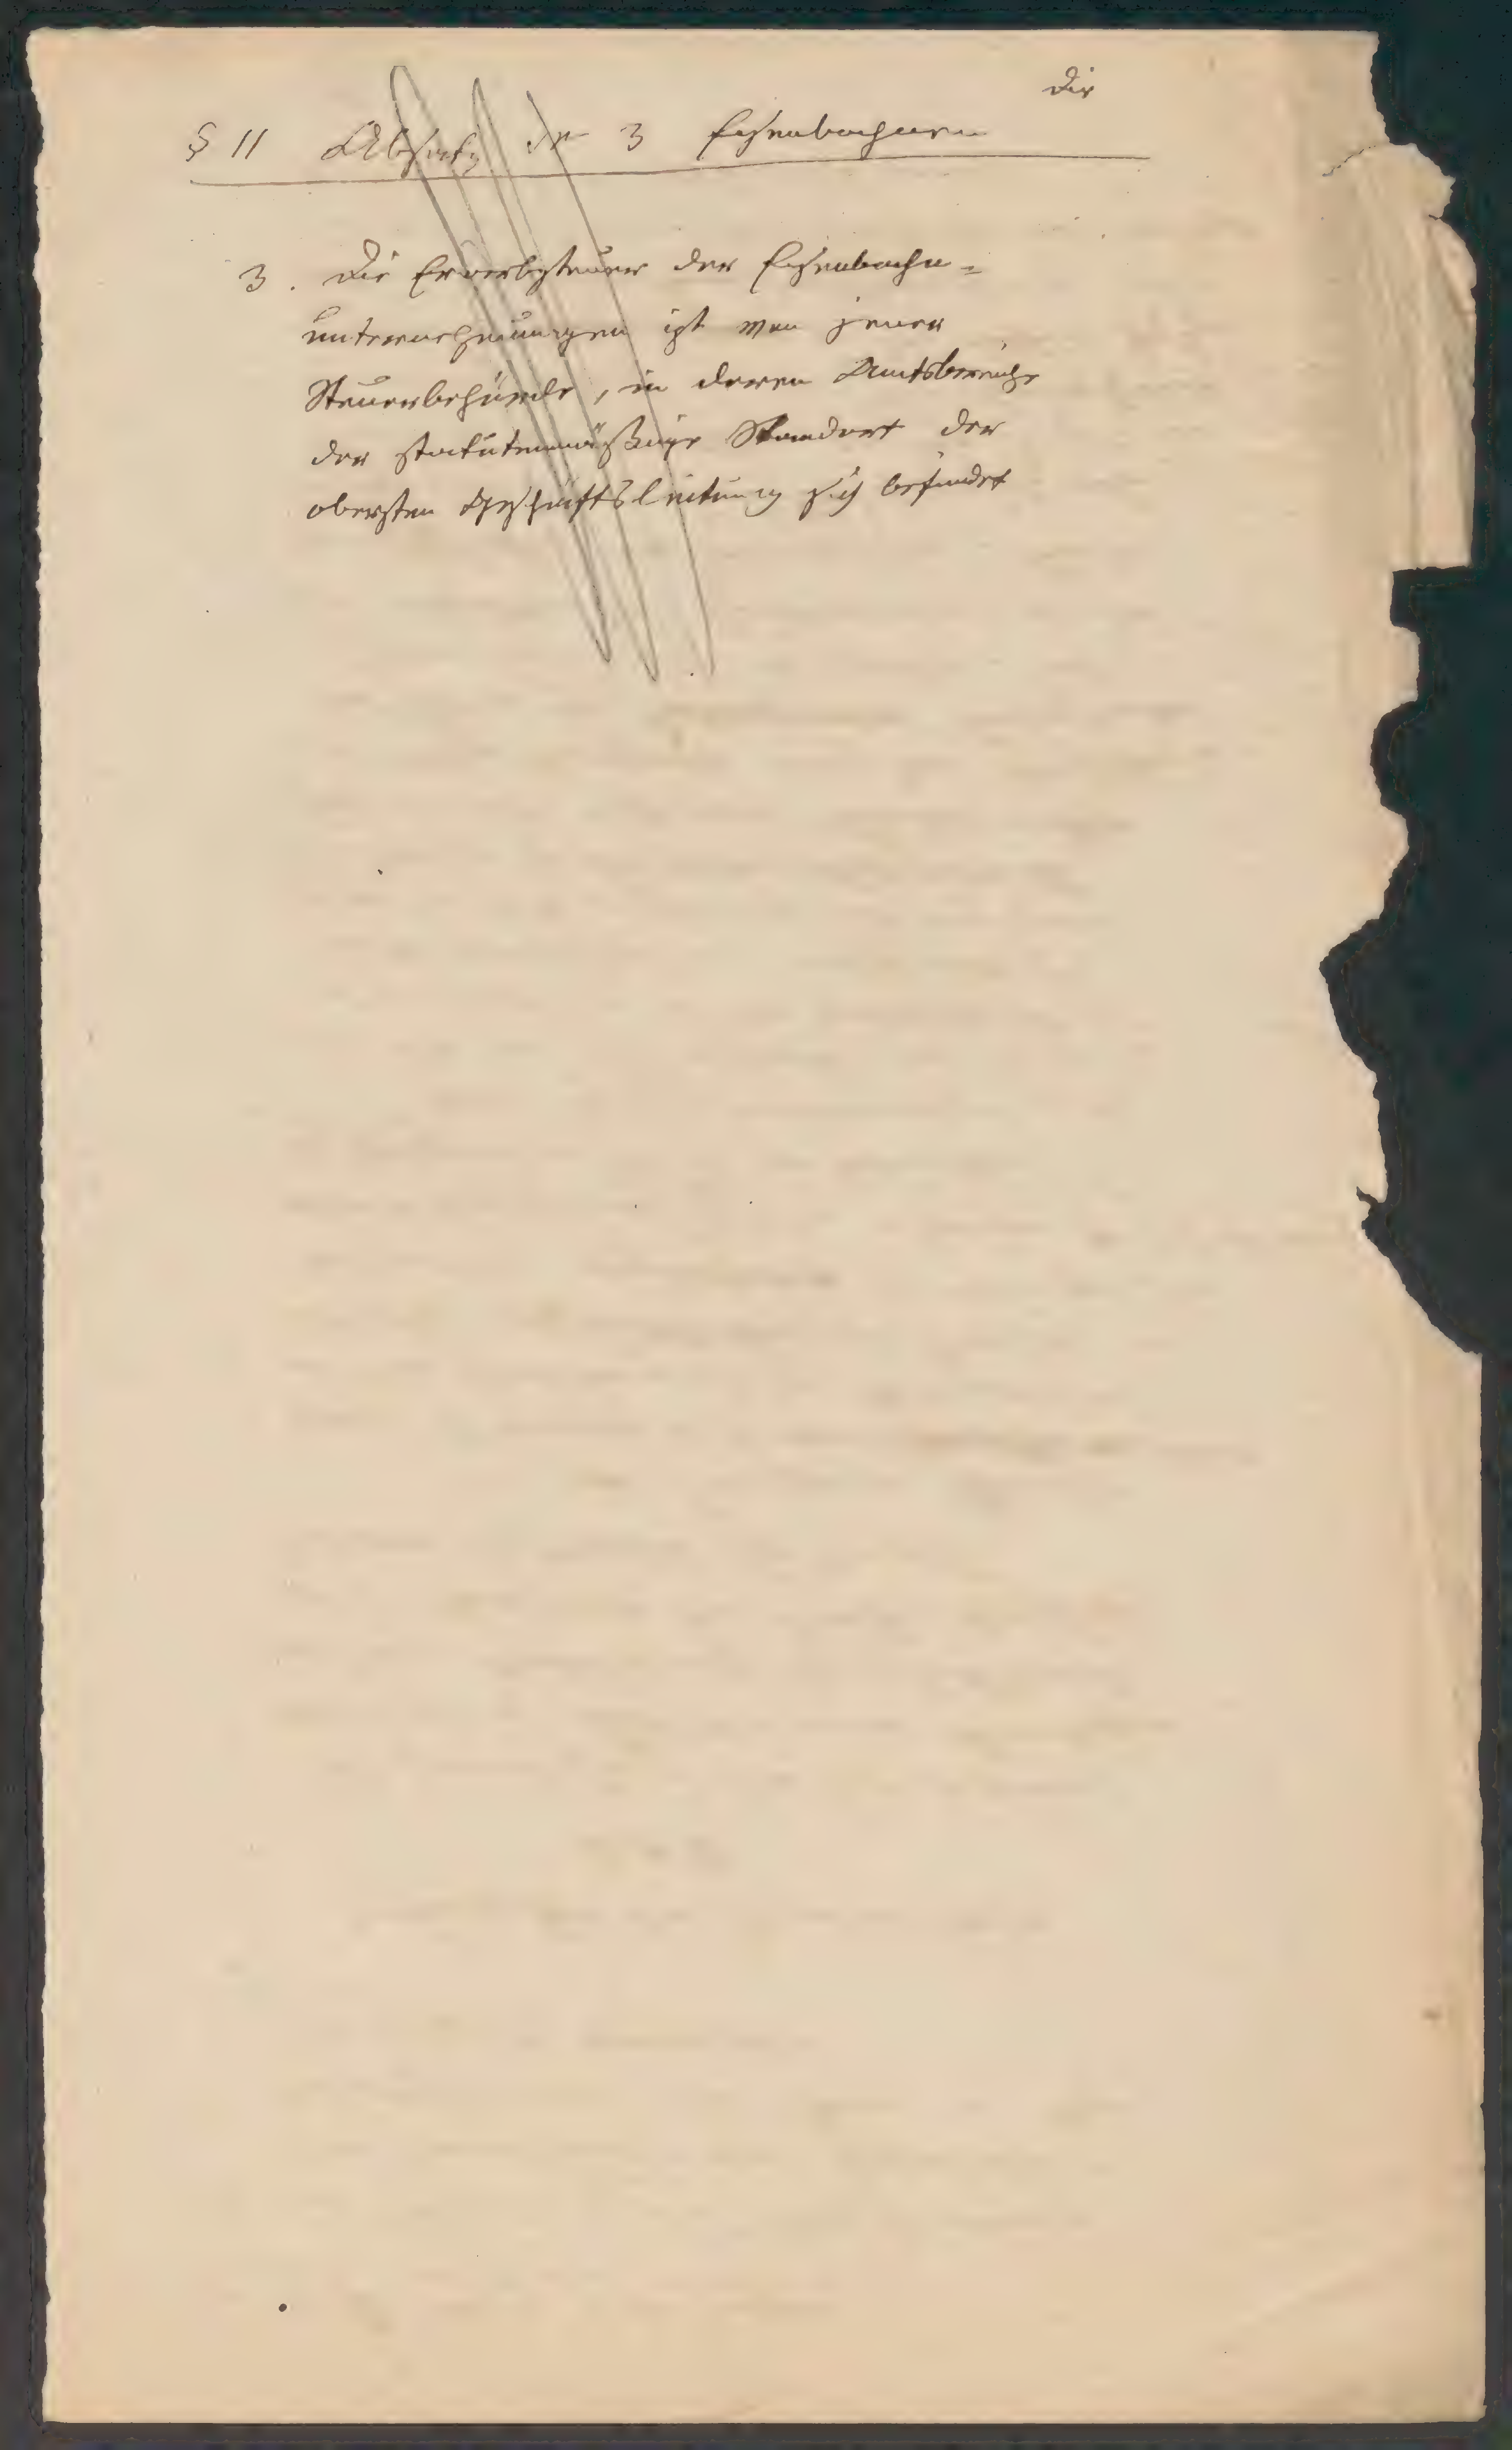 Die
§ 11 Absatz 3 Eisenbahnen
3. Die Erwerbsteuer der Eisenbahn=
unternehmungen ist von jener
Steuerbehörde, in deren Amtsbereiche
der statutenmäßige Standort der
obersten Geschäftsleitung sich befindet